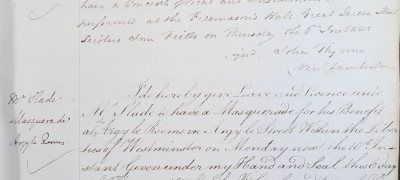 have a Concert Vocal and Instrumental
performed at the Freemasons Hall Great Queen Street
Lincolns Inn Fields on Thursday the 6th Instant
signd. John Thynne
Vice Chamberlain
Mr Slade
Masquerade
Argyle Rooms
I do hereby give Leave and Licence unto
Mr Slade to have a Masquerade for his Benefit
at Argyle Rooms in Argyle Street Within the Liber
ties of Westminster on Monday next the 10th In-
stant Given under my Hand and Seal this 6 Day